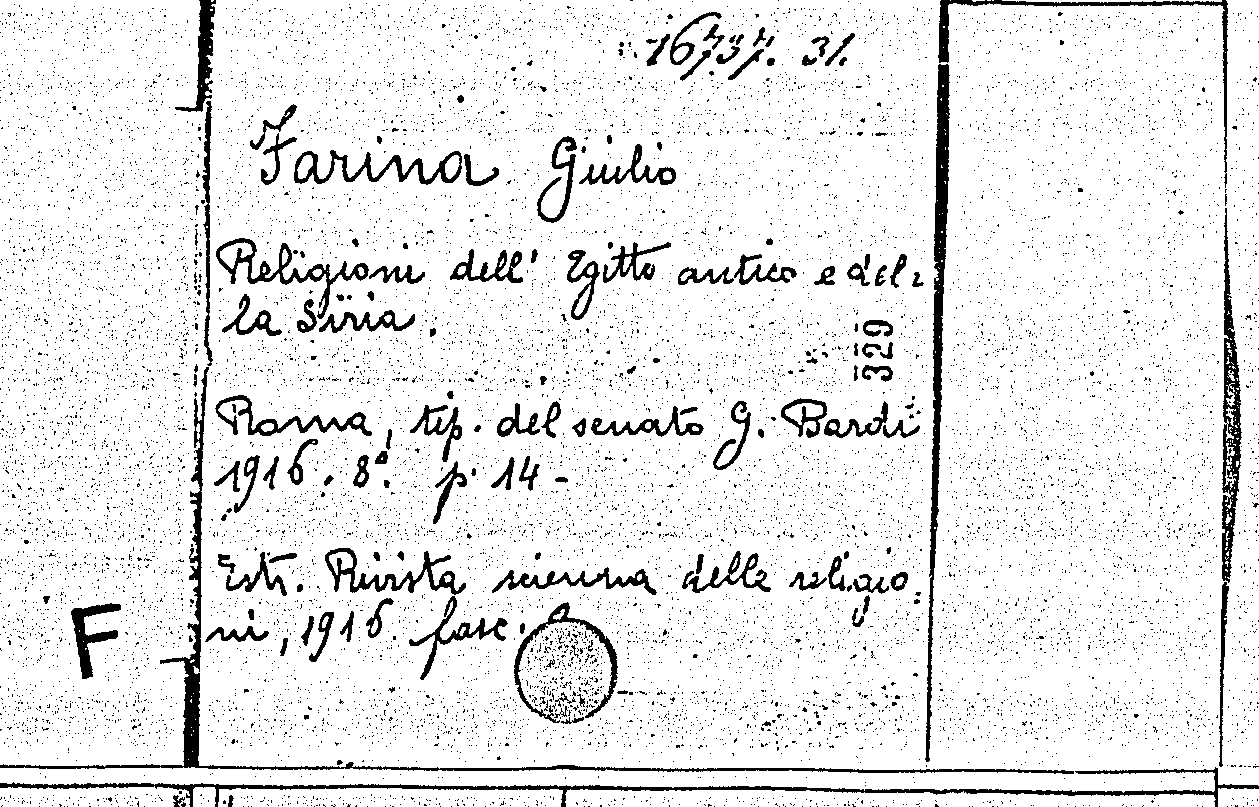 16737. 31.
Farina Giulio
Religioni dell' Egitto antico e del=
la Siria.
329
Roma, tip. del senato G. Bardi
1916. 8º. p. 14 -
Estr. Rivista scienza delle religio=
ni, 1916. fasc.
F